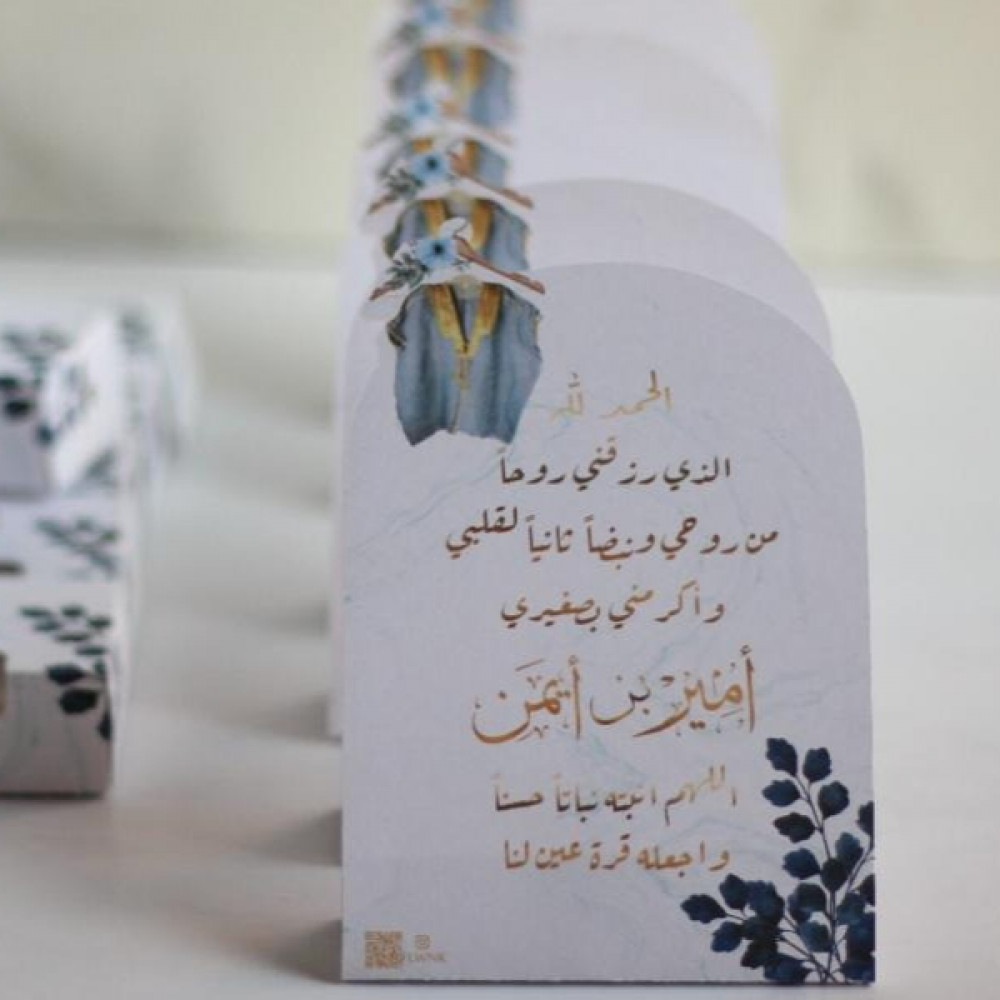 الحمد لله
الذي رزقني روحاً
من روحي ونبضاً ثانياً لقلبي
وأكرمني بصغيري
أمير بن أيمَن
اللهم انبته نباتاً حسناً
واجعله قرة عين لنا